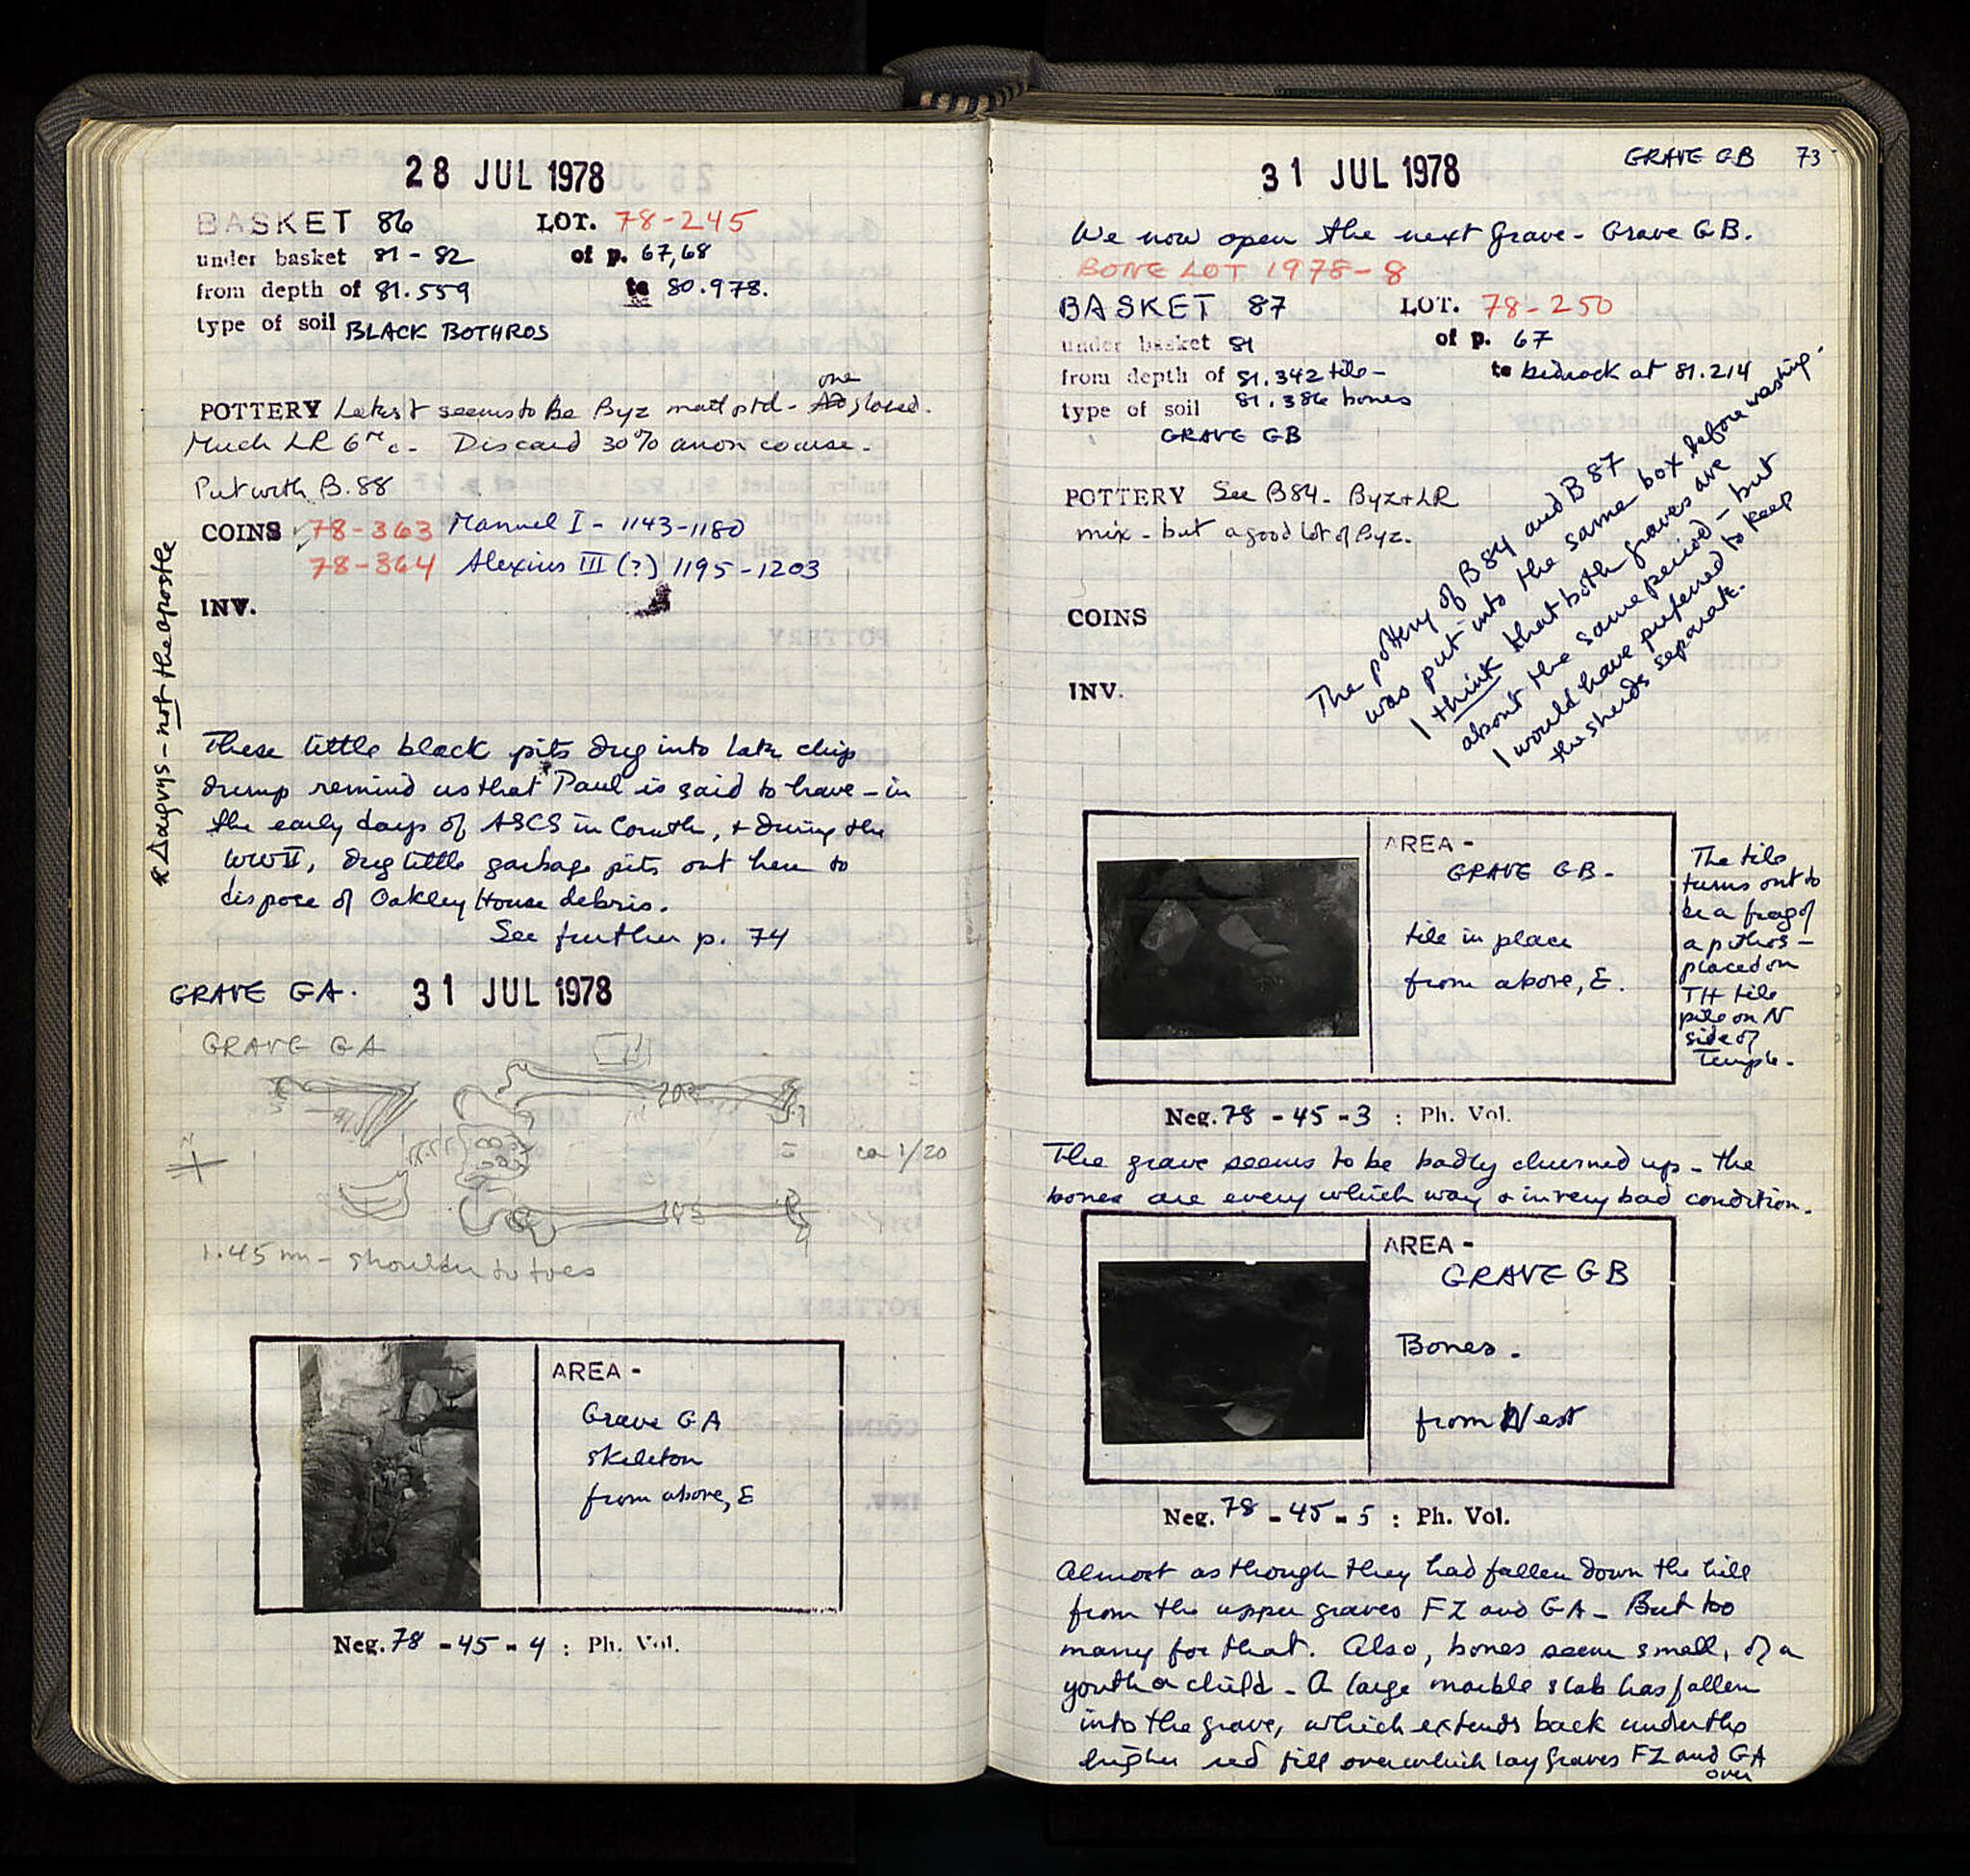 28 JUL 1978
BASKET 86 LOT. 78-245
under basket 81 - 82 of p. 67,68
from depth of 81.559 to 80.978.
type of soil BLACK BOTHROS
one
POTTERY Latest seems to be Byz matt ptd - glazed.
Much LR 6th c. Discard 30% anon coarse.
Put with B.88
COINS 78-363 Manuel I - 1143-1180
78-364 Alexius III (?) 1195-1203
INV.
These little black pits dug into late chip
dump remind us that Paul is said to have - in
the early days of ASCS in Corinth, + during the
WWII, dug little garbage pits out here to
dispose of Oakley House debris.
See further p. 74
- not the apostle
GRAVE GA. 31 JUL 1978
GRAVE GA
N
ca 1/20
1.45 m - shoulder to toes
AREA -
Grave GA
skeleton
from above, E
Neg. 78 - 45 - 4 : Ph. Vol.
GRAVE GB 73
31 JUL 1978
We now open the next grave - Grave GB.
BONE LOT 1978-8
BASKET 87 LOT. 78-250
under basket 81 of p. 67
from depth of 81.342 tile - to bedrock at 81.214
type of soil 81.386 bones
GRAVE GB
POTTERY See B84 - Byz + LR
mix - but a good lot of Byz.
COINS
INV.
The pottery of B84 and B87
was put into the same box before washing.
I think that both graves are
about the same period - but
I would have preferred to keep
the sherds separate.
AREA -
GRAVE GB -
tile in place
from above, E.
The tile
turns out to
be a frag of
a pithos -
placed on
TH tile
pile on N
side of
Temple.
Neg. 78 - 45 - 3 : Ph. Vol.
The grave seems to be badly churned up - the
bones are every which way & in very bad condition.
AREA -
GRAVE GB
Bones.
from West
Neg. 78 - 45 - 5 : Ph. Vol.
Almost as though they had fallen down the hill
from the upper graves FZ and GA - But too
many for that. Also, bones seem small, of a
youth or child - A large marble slab has fallen
into the grave, which extends back under the
higher red fill over which lay graves FZ and GA
over